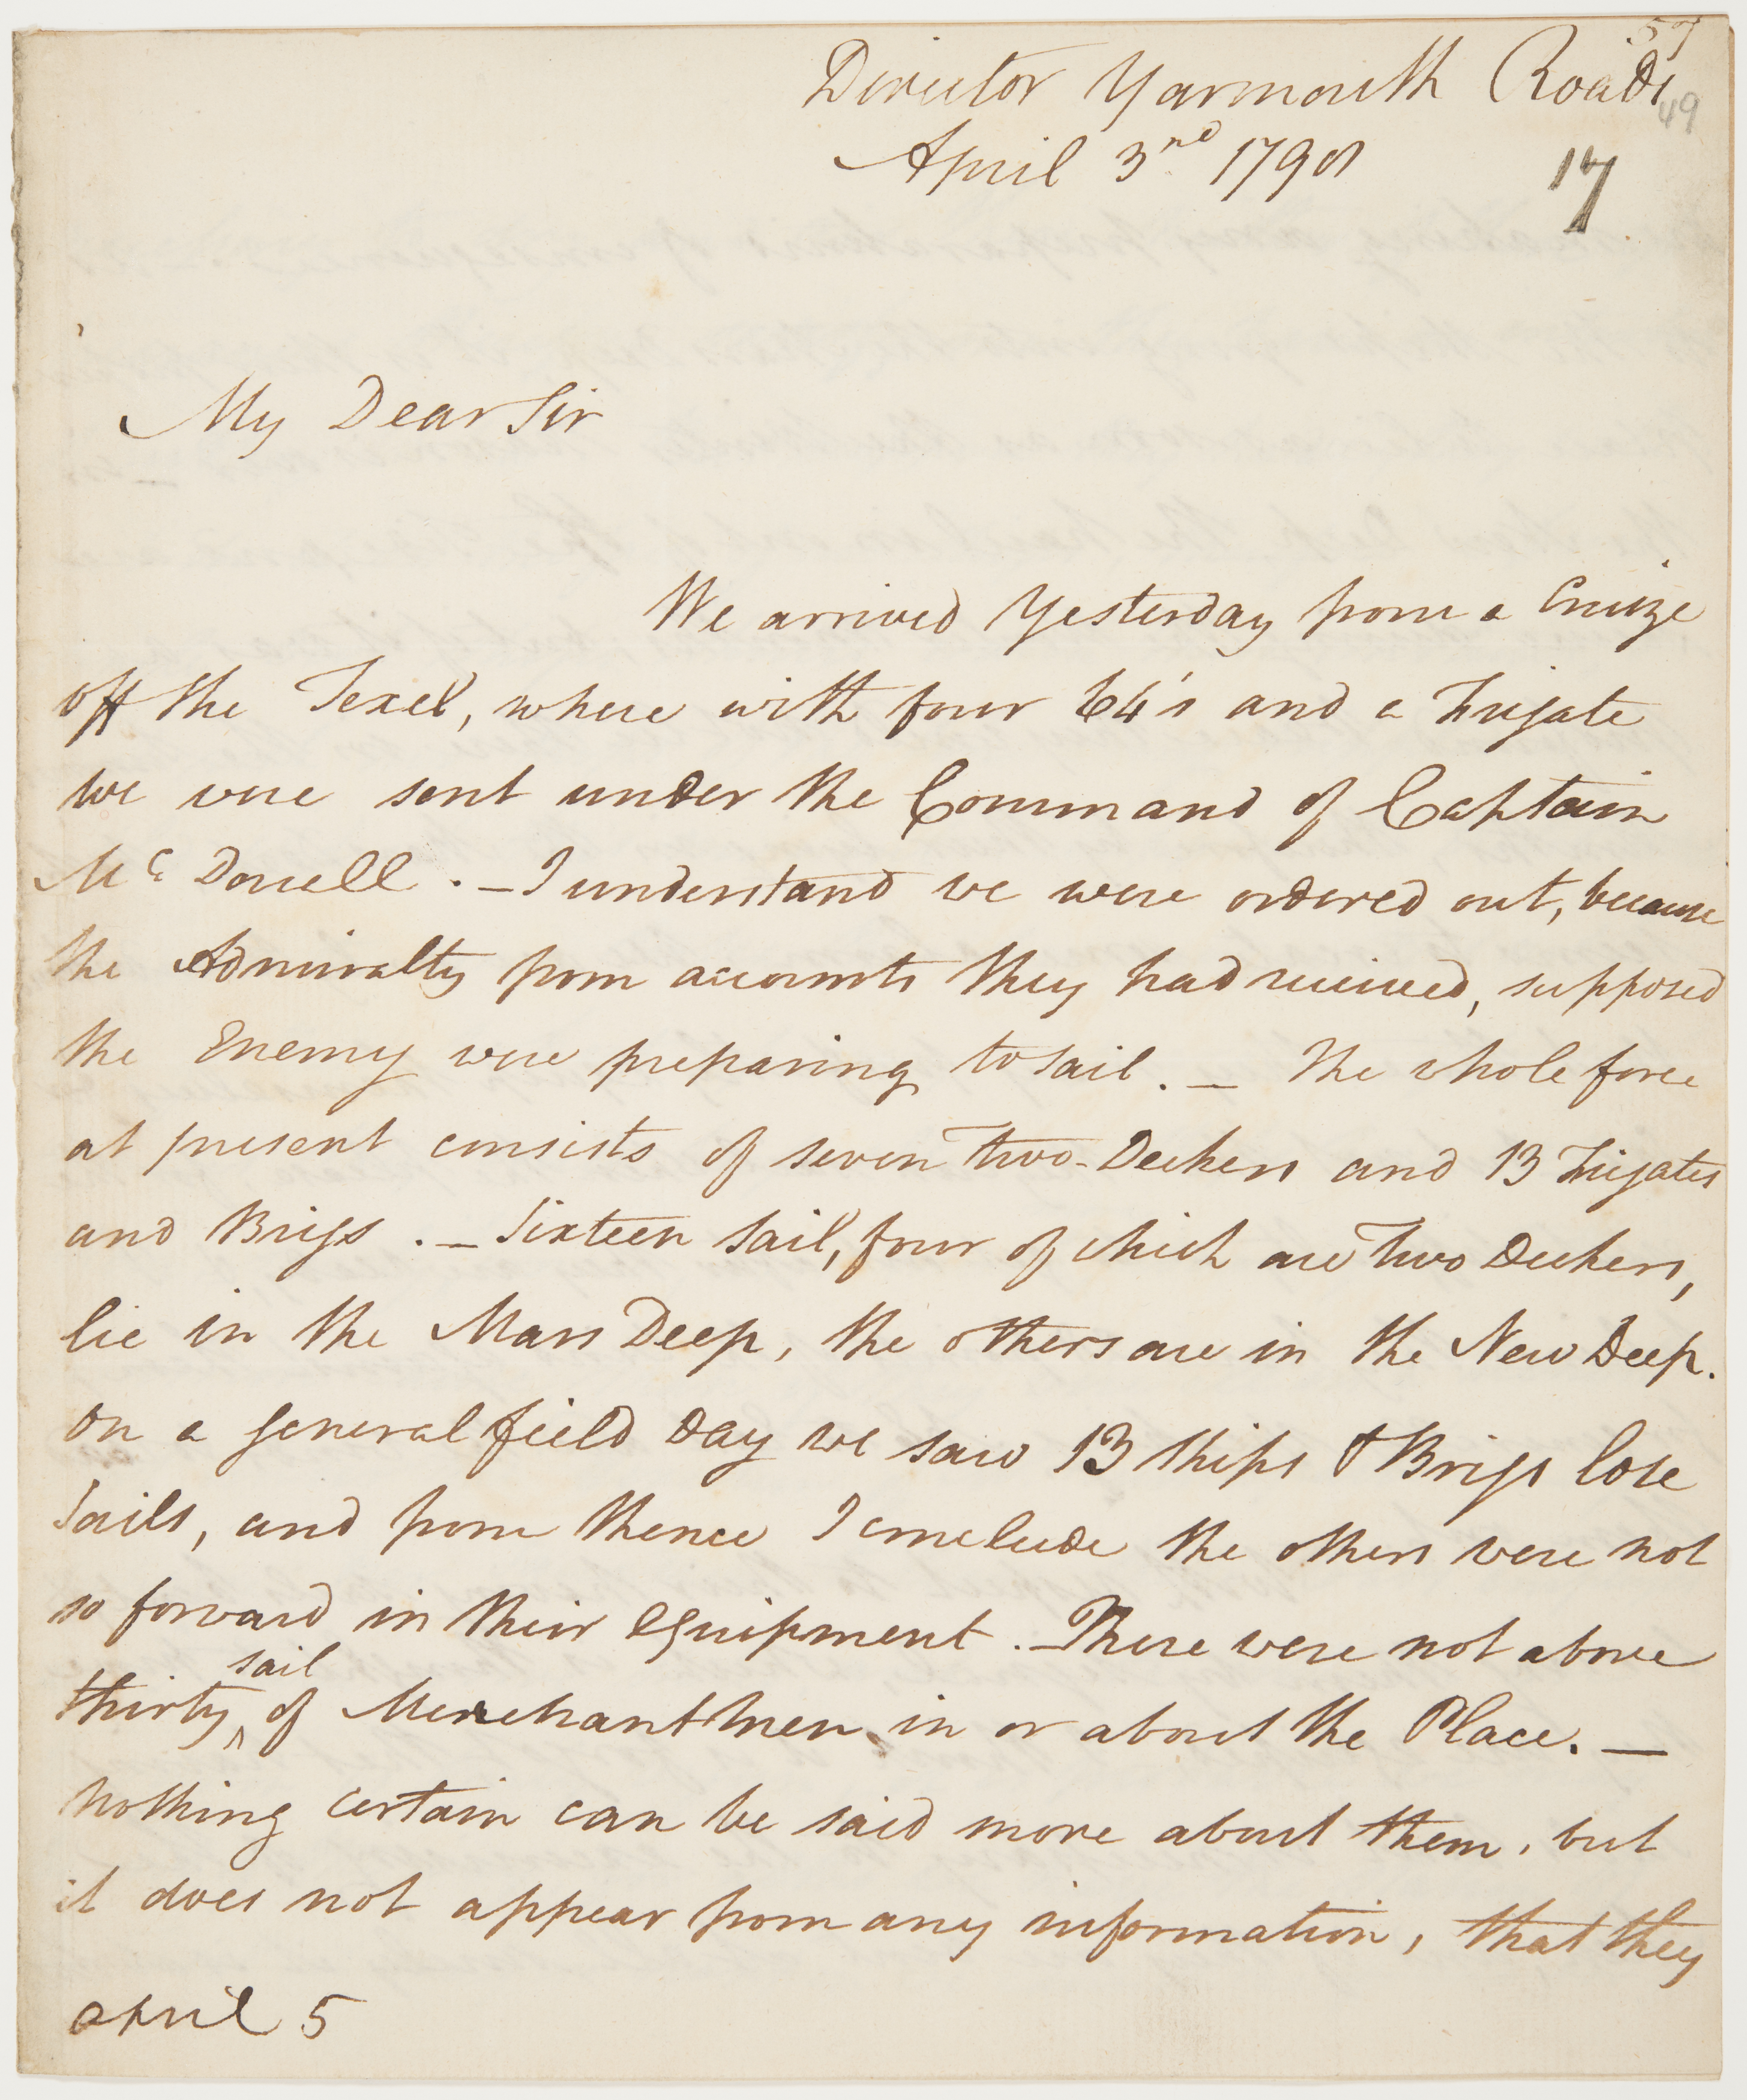 57
Director Yarmouth Roads
49
April 3rd 1798
17
My Dear Sir
We arrived Yesterday from a Cruize
off the Texel, where with four 64's and a Frigate
we were sent under the Command of Captain
Mc Douell . - I understand we were ordered out, because
the Admiralty from accounts they had received, supposed
the Enemy were preparing to sail. - The whole force
at present consists of seven Two-Deckers and 13 Frigates
and Brigs . - Sixteen Sail, four of which are Two Deckers,
lie in the Mars Deep, the others are in the New Deep.
On a general field Day we saw 13 Ships & Brigs lose
Sails, and from thence I conclude the others were not
so forward in their Equipment . - There were not above
sail
thirty ^ of Merchant Men in or about the Place. -
Nothing certain can be said more about them, but
it does not appear from any information, that they
april 5